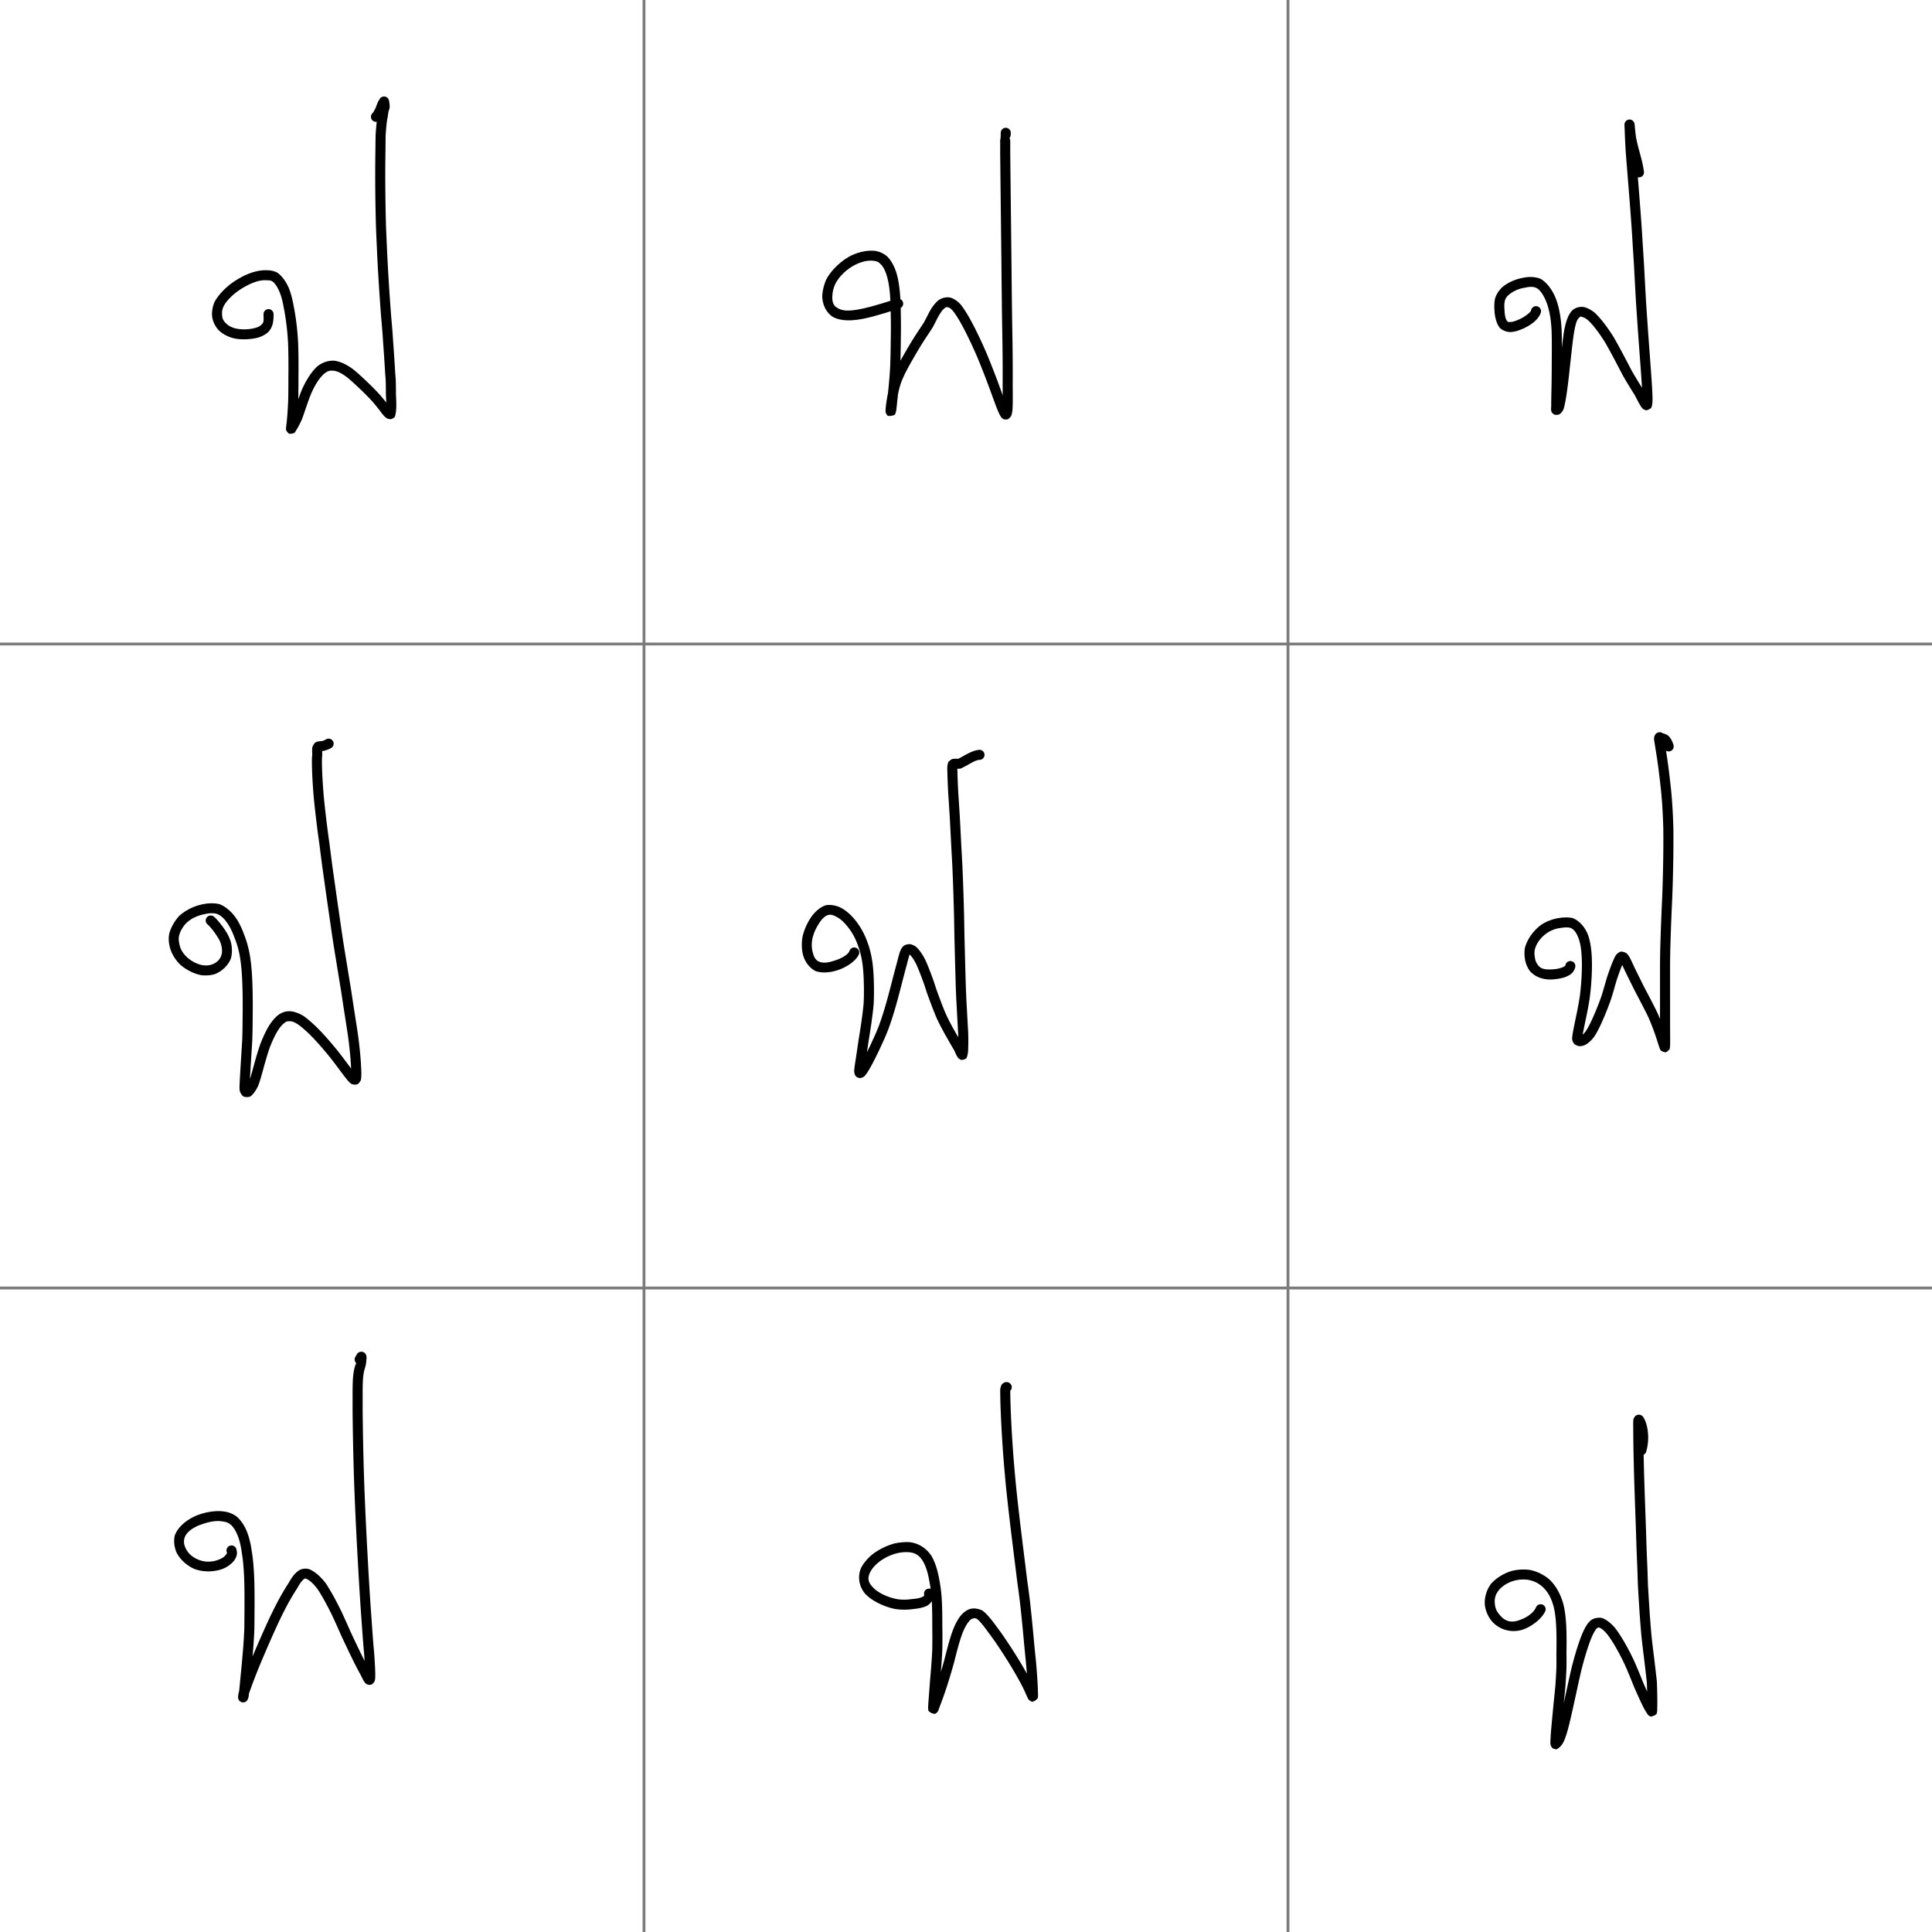 ฟ ฟ ฟ
ฟ ฟ ฟ
ฟ ฟ ฟ